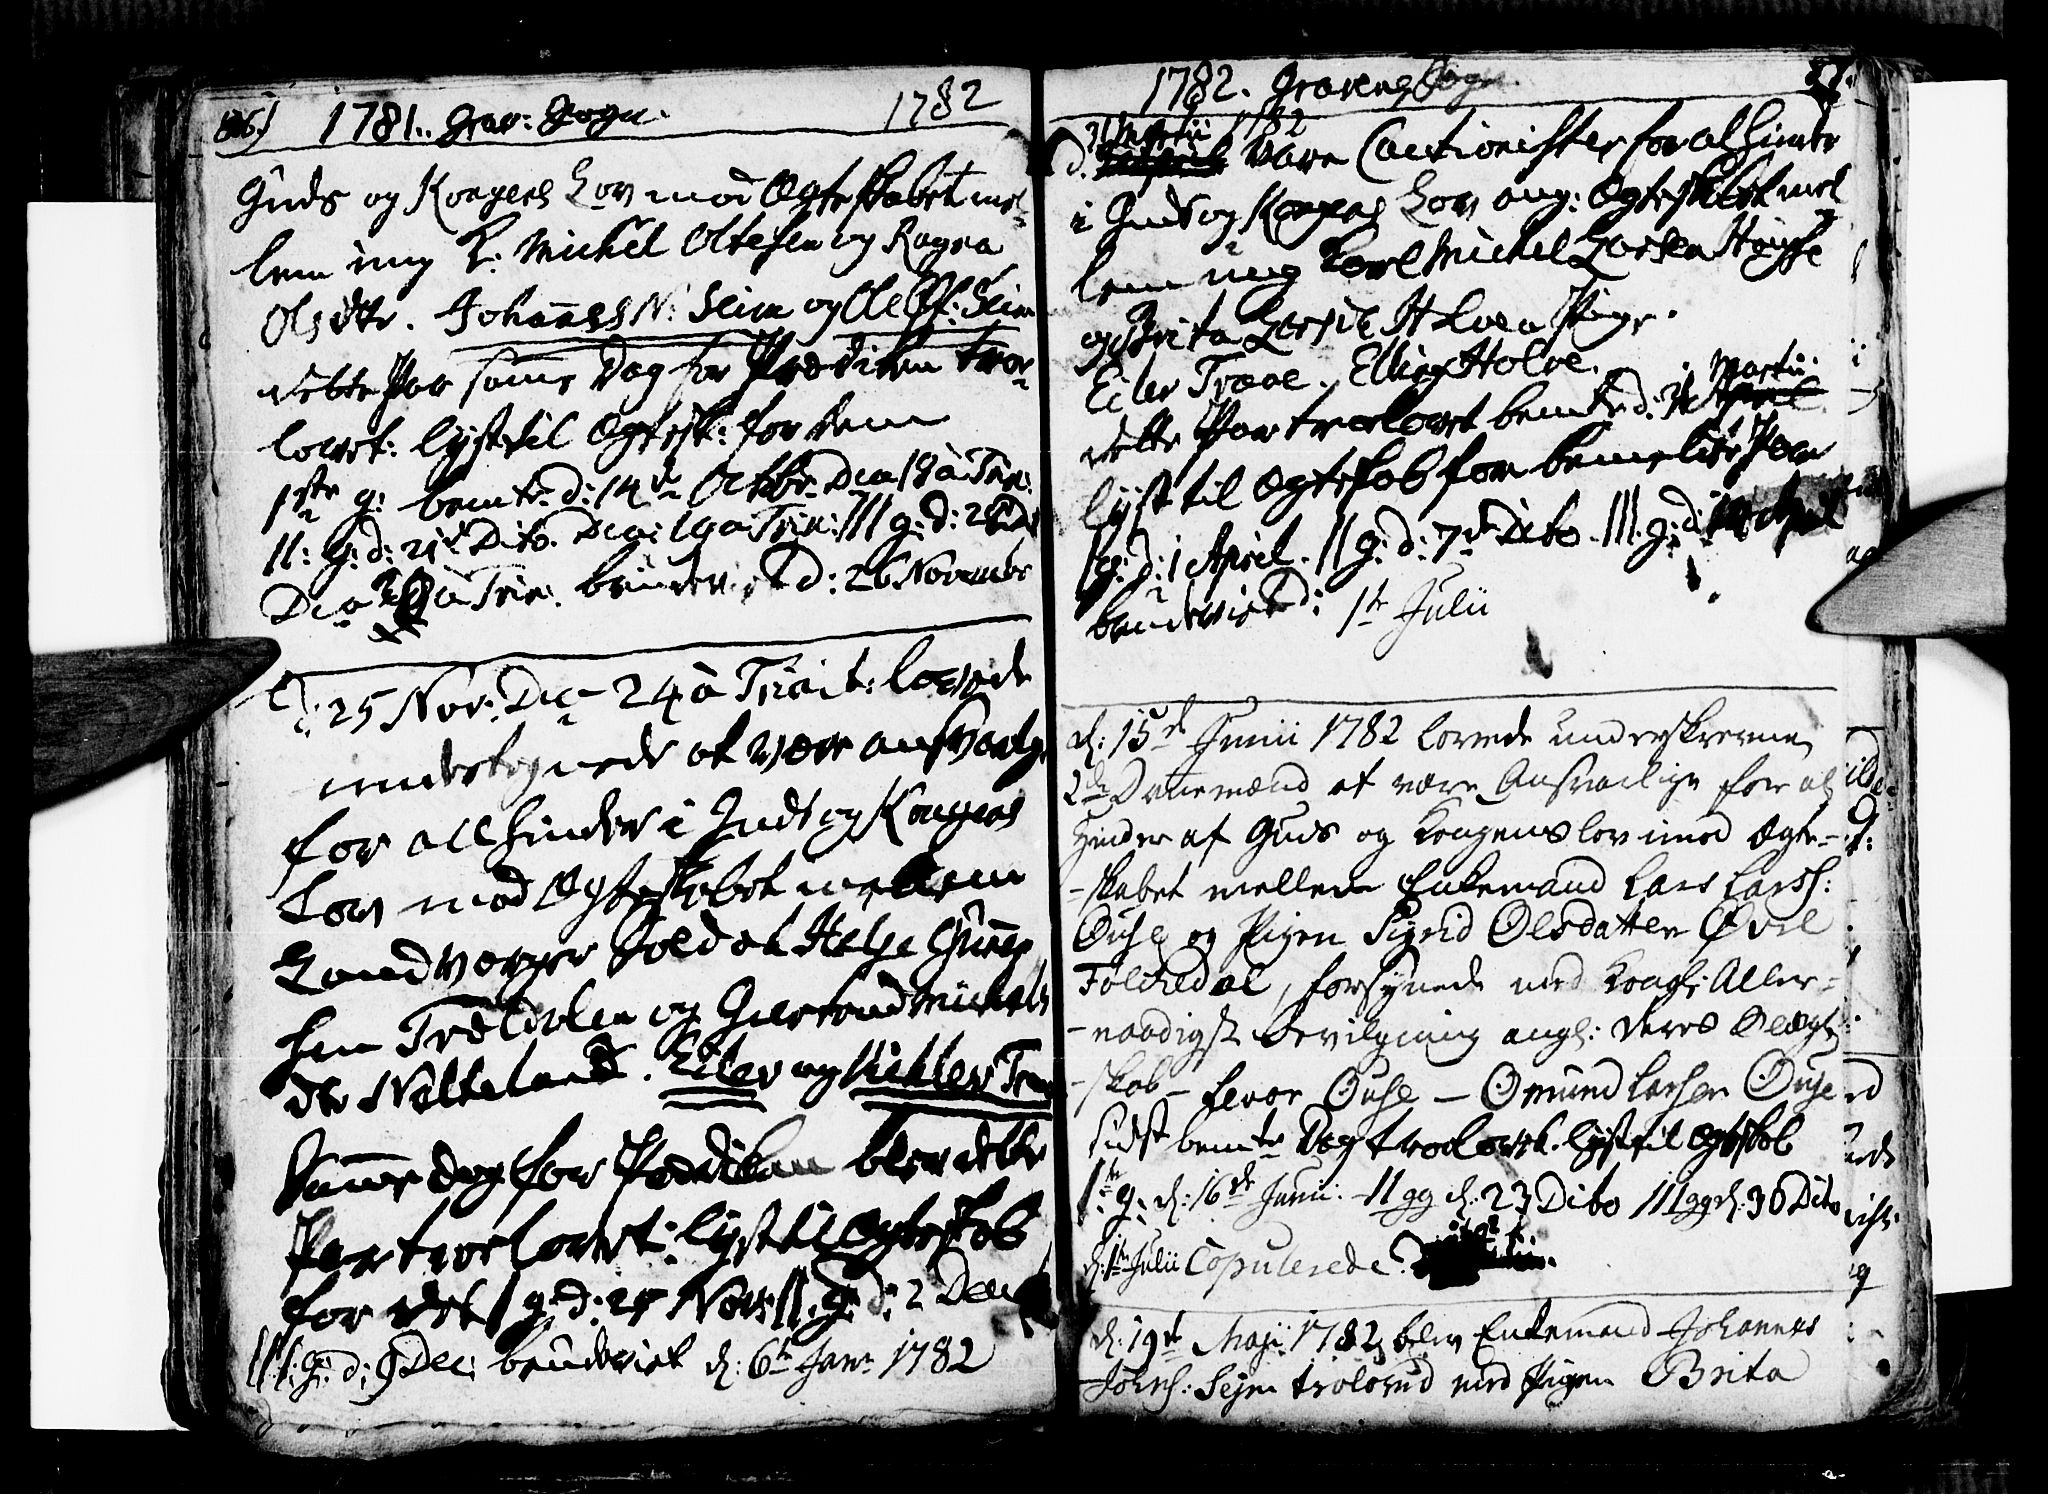 86) 1781. Grav: Sogn. 1782
Guds og Kongens Lov mod Ægteskabet mel-
lem ung K: Michel Oltesen og Ragna
Olsdtr. Johannes N: Seim og Ole Seim
dette Par samme Dag for Prædiken trov-
lovet: lyst til Ægtesk: for dem
1ste g: bemte d: 14de Octbr Dca 18 à Trin:
II: g: d: 21de Dito Dca: 19 à Trin: III g: d: 28 Dito
Dca 20 à Trin. brudeviet d: 26 Novembr
d: 25 Nov: Dca 24 à Trinit: lovede
undertegnede at være ansvarlige
for all hinder i Guds og Kongens
Lov mod Ægteskabet mellem
Landverger Soldat Helge
sen Trældalen og Giertrud Michels
dtr Nætteland. Eiler og Michler Træ
Samme dag for Prædiken blev dette
Par trovlovet: lyst til Ægteskab
for dem I g: d: 25 Nov: II. g: d: 2 Dec
III. g: d: 9 Dec: brudeviet d: 6te Janr 1782
1782. Gravens Sogn. 87.
d. 31 Martii 1782 vare Cautionister for al hinder
i Guds og Kongens Lov ang: Ægteskabet mel
lem ung Karl Michel Larsen
og Brita Pige.
Eiler Træae. Elling Holve.
dette Par trolovet bemte d: 31 Martii
lyst til Ægteskab for bemelte Par
I g: d: 1 April. II g: d: 7de Dito. III. g: d: 14 April
brudeviet d: 1te Julii
d: 15de Junii 1782 lovede underskrevne
2de Danemænd at være Ansvarlige for al
Hinder af Guds og Kongens lov imod Ægte-
-skabet mellem Enkemand Lars Larss:
Øuse og Pigen Sigrid Olsdatter Øvre
Folkedal, forsynede med Kongl: Aller-
-naadigst Bevilgning angl: deres Slægt-
-skab - Sevor Øuse - Omund Larsen Øuse
sidst bemte Dag trolovet. lyst til Ægteskab
1te g: d: 16de Junii. II gg d: 23 Dito III gg d: 30 Dito
d: 1te Julii Copulerede.
d: 19de Maji 1782 blev Enkemand Johannes
Johns: Sejm trolovid med Pigen Brita